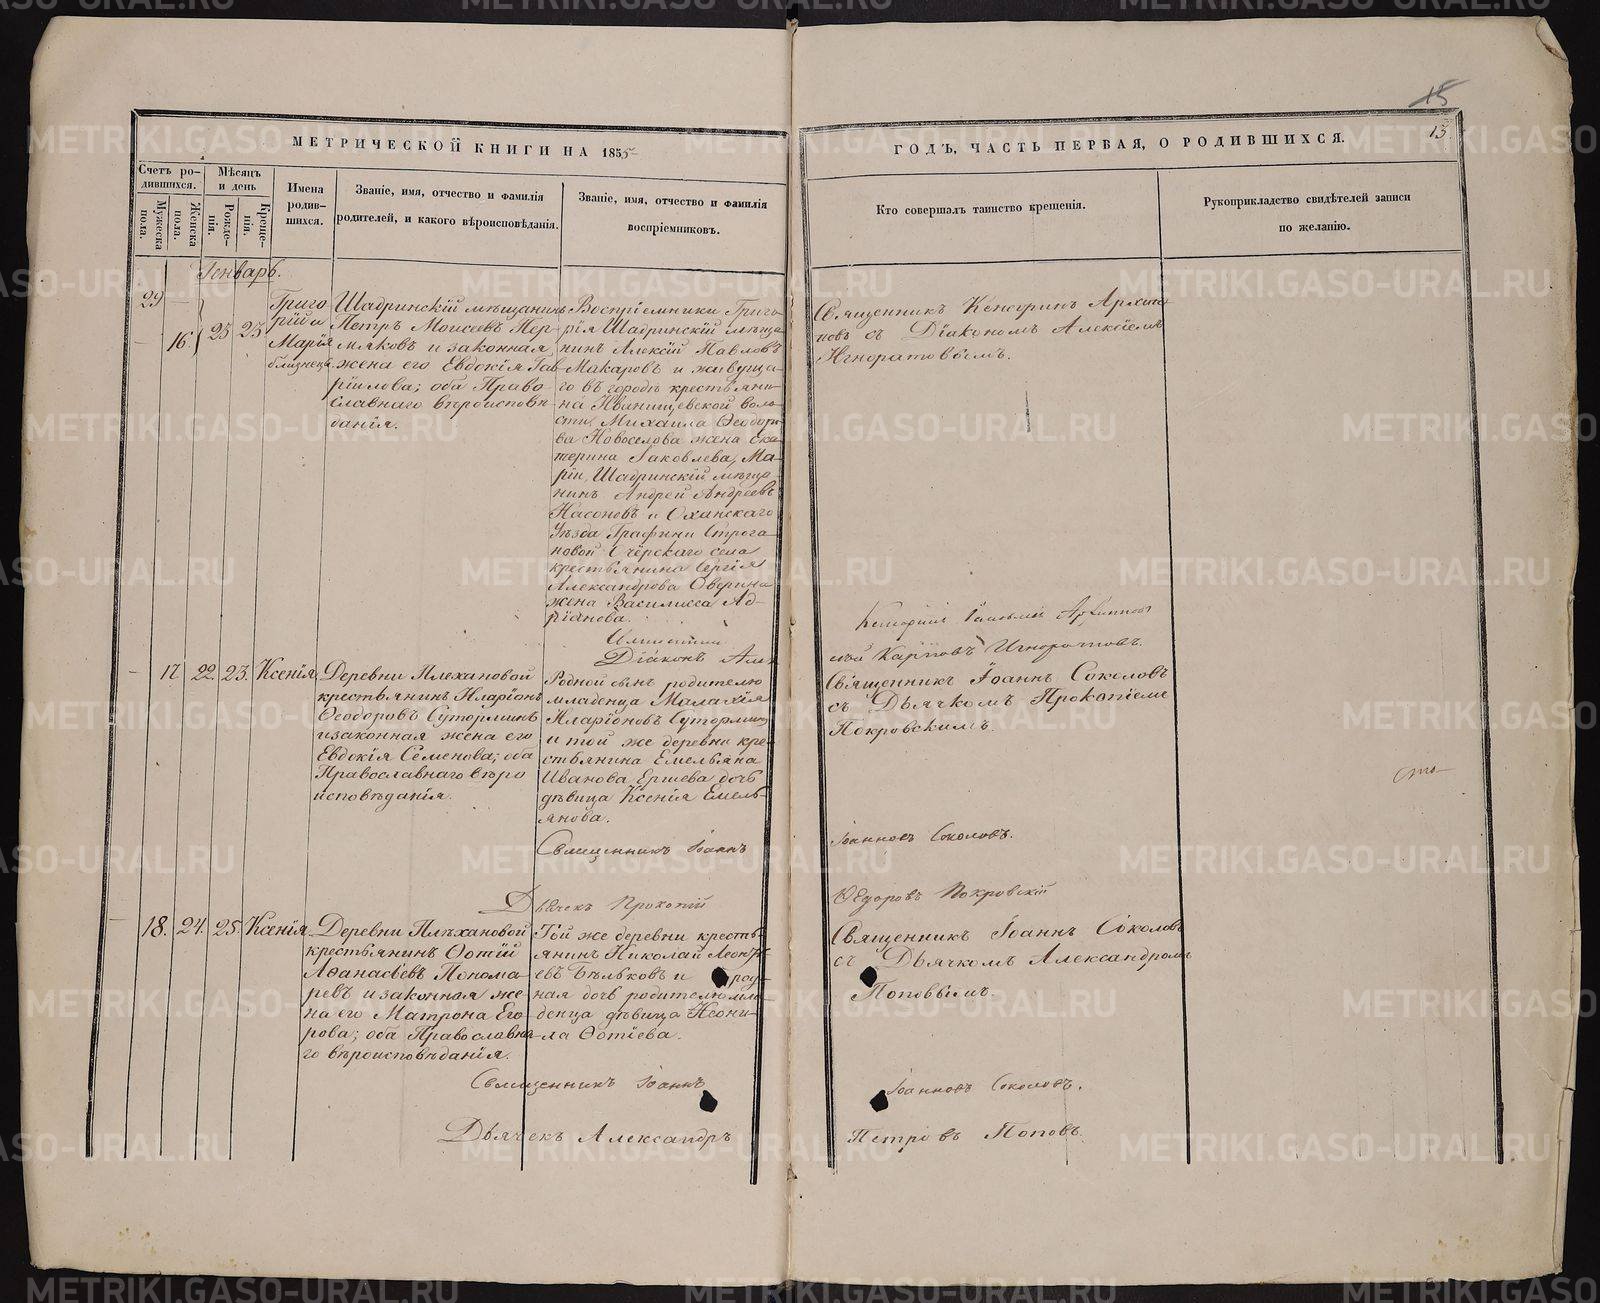 15
13
МЕТРИЧЕСКОЙ КНИГИ НА 1855
ГОДЪ, ЧАСТЬ ПЕРВАЯ, О РОДИВШИХСЯ.
Счетъ ро-
дившихся.
Мужеска
пола.
Женска
пола.
Мѣсяцъ
и день
Рожде-
нія.
Креще-
нія.
Имена
родив-
шихся.
Званіе, имя, отчество и фамилія
родителей, и какого вѣроисповѣданія.
Званіе, имя, отчество и фамилія
воспріемниковъ.
Кто совершалъ таинство крещенія.
Рукоприкладство свидѣтелей записи
по желанію.
Генварь.
29
16
23 23
Григо
рій и
Марія
близнецы
Шадринскій мѣщанинъ
Петръ Моисеевъ Пер-
мяковъ и законная
жена его Евдокія Гав-
ріилова; оба Право-
славнаго вѣроисповѣ-
данія.
Воспріемники Григо-
рія Шадринскій мѣща
нинъ Алексій Павловъ
Макаровъ и живуща-
го въ городѣ крестьяни-
на Иванищевской воло-
сти, Михаила Ѳеодоро-
ва Новоселова жена Ека
терина Іаковлева, Ма-
ріи, Шадринскій мѣща-
нинъ Андрей Андреевъ
Насоновъ и Оханскаго
Уѣзда Графини Строга
новой Очерскаго села
крестьянина Сергія
Александрова Оверина
жена Василисса Ад-
ріанова.
Священникъ Архипо
повъ съ Діакономъ Алексіемъ
Игноратовымъ.
Діаконъ Але
Карповъ Игноратовъ.
17 22. 23. Ксенія
Деревни Плехановой
крестьянинъ Иларіонъ
Ѳеодоровъ Суторминъ
и законная жена его
Евдокія Семенова; оба
Православнаго вѣро
исповѣданія.
Родной сынъ родителю
младенца Малахія
Иларіоновъ Суторминъ
и той же деревни кре-
стьянина Емельяна
Иванова Ершева дочь
дѣвица Ксенія Емель-
янова.
Священникъ Іоаннъ Соколовъ
съ Дьячкомъ Прокопіемъ
Покровскимъ.
Священникъ Іоаннъ
Іоанновъ Соколовъ.
Дьячекъ Прокопій
Ѳедоровъ Покровскій
18. 24. 25. Ксенія
Деревни Плѣхановой
крестьянинъ Ѳотій
Аѳанасьевъ Понома-
ревъ и законная же-
на его Матрона Его-
рова; оба Православна-
го вѣроисповѣданія.
Той же деревни кресть-
янинъ Николай Леонть-
евъ Бѣльковъ и род-
ная дочь родителю мла-
денца дѣвица Неони-
ла Ѳотіева.
Священникъ Іоаннъ Соколовъ
съ Дьячкомъ Александромъ
Поповымъ.
Священникъ Іоаннъ
Іоанновъ Соколовъ.
Дьячекъ Александръ
Петровъ Поповъ.
METRIKI.GASO-URAL.RU